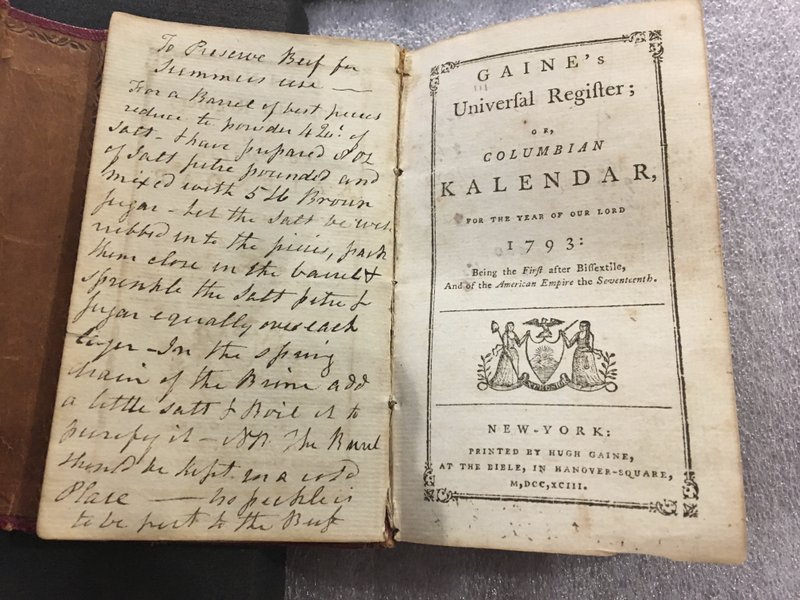 To Preserve Beef for
Summers use —
For a Barrel of best pieces
reduce to powder 4 Qts. of
Salt – have prepared 8 oz
of Salt petre pounded and
mixed with 5 lb Brown
sugar – let the Salt be well
rubbed into the pieces, pack
them close in the barrel &
sprinkle the Salt petre &
sugar equally over each
layer – In the spring
drain of the Brine add
a little salt & Boil it to
purify it – NB. The Barrel
should be kept in a cold
Place — no pickle is
to be put to the Beef
GAINE's
Universal Register;
OR,
COLUMBIAN
KALENDAR,
FOR THE YEAR OF OUR LORD
1793:
Being the First after Bissextile,
And of the American Empire the Seventeenth.
NEW-YORK:
PRINTED BY HUGH GAINE,
AT THE BIBLE, IN HANOVER-SQUARE,
M,DCC,XCIII.